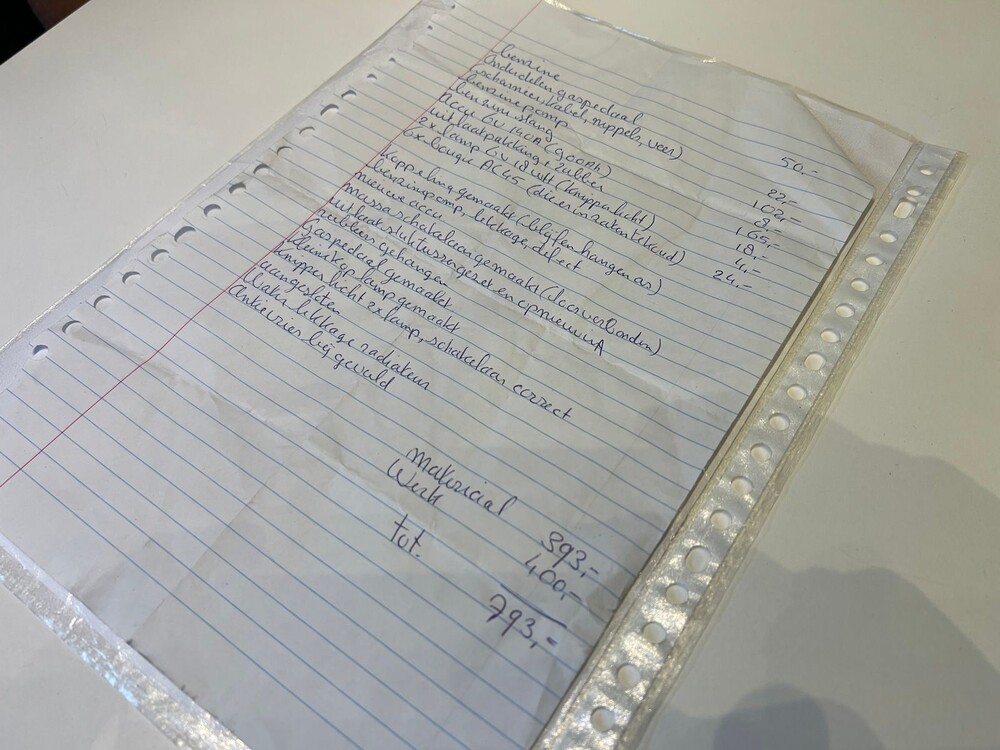 benzine 50,-
Onderdelen gaspedaal
scharnier, kabel, nippels, veer) 22,-
benzinepomp 102,-
benzine slang 8,-
Accu 6V 140A (900Ah) 165,-
uitlaatpakking + rubber 18,-
2x lamp 6V 18 wtt (knipperlicht) 4,-
6x bougie AC45 (die er in zaten tekoud) 24,-
Koppeling gemaakt (blijfen hangen as)
benzinepomp, lekkage, defect
nieuwe accu
massaschakelaar gemaakt (door verbonden)
uitlaatstuk tussengezet en opnieuw in
rubbers gehangen
Gaspedaal gemaakt
lamp gemaakt
Knipperlicht 2x lamp, schakelaar correct
aangesloten
lekkage radiateur
Antivries bijgevuld
materiaal 393,-
Werk 400,-
tot. 793,-